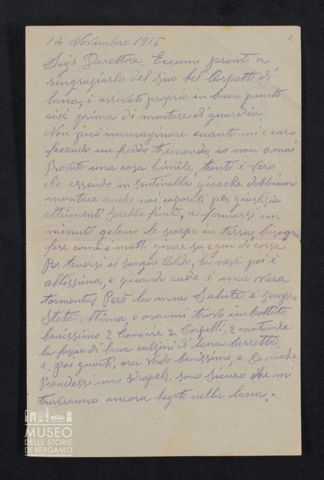 14 Novembre 1915
Sig.r Direttore, Eccomi pronto a
rengraziarlo del Suo bel Corpetto di
lana, è arrivato proprio in buon punto
cioè prima di montare di guardia.
Non può immaginare quanto mi è caro
facendo un freddo tremendo io non o mai
provato una cosa simile, tanto è vero
che essendo in sentinella giacchè dobbiamo
montare anche noi caporali per giustizia
altrimenti sarebbe finito, a fermarsi un
minuto gelano le scarpe in terra, bisogna
fare come i matti girare su e giu di corsa
Per tenersi il sangue Caldo, la neve poi è
altissima, e quando cade è una vera
tormenta, Però la mia Salute è sempre
Stata ottima, e ora mi trovo imbottito
benissimo 2 Camicie 2 Corpetti, 2 mutande
la fascia di lana calzini di lana berretto
e poi guanti, ora Vado benissimo, e Se anche
Prendessi uno Srapels, sono Sicuro che mi
troveranno ancora legato nella lana.
MUSEO
DELLE STORIE
DI BERGAMO